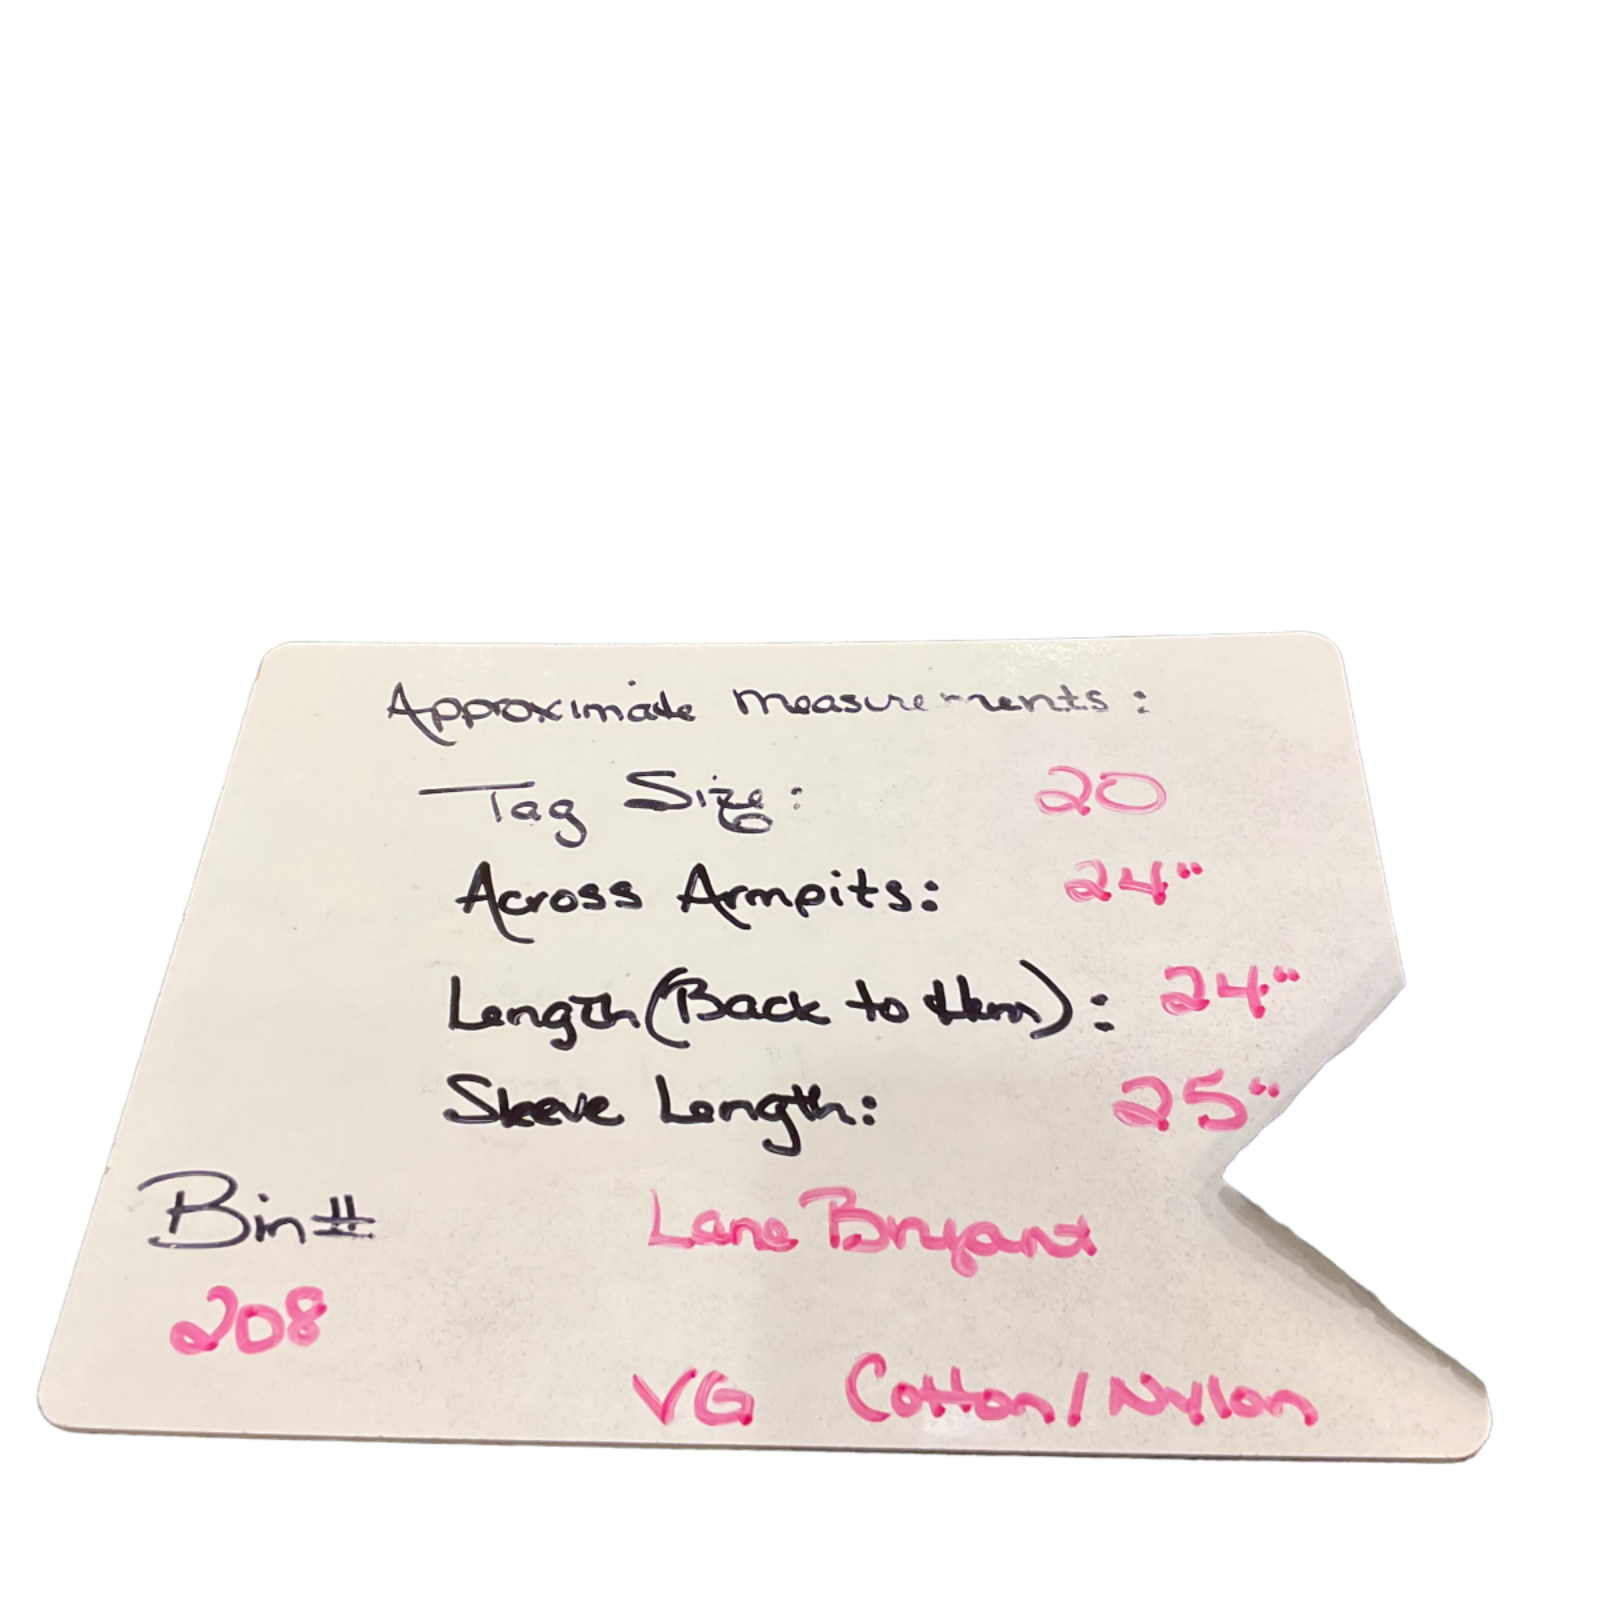 Approximate measurements:
Tag Size: 20
Across Armpits: 24"
Length (Back to Hem): 24"
Sleeve Length: 25"
Bin# Lane Bryant
208
VG Cotton/Nylon